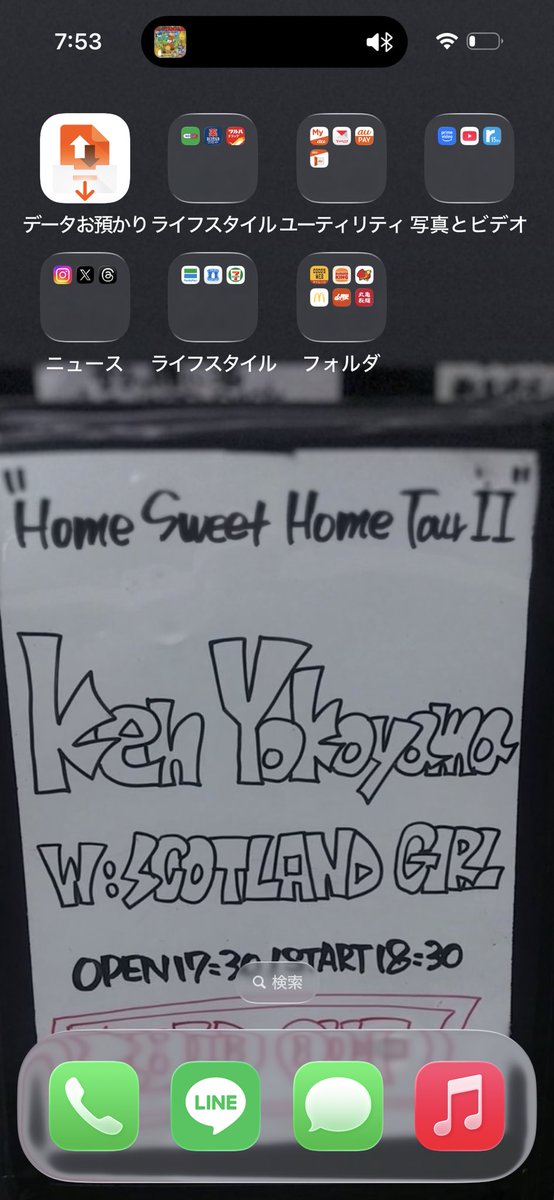 7:53
データお預かり ライフスタイル ユーティリティ 写真とビデオ
ニュース ライフスタイル フォルダ
"Home Sweet Home Tour II"
Ken Yokoyama
W:SCOTLAND GIRL
OPEN17:30 START18:30
検索
LINE